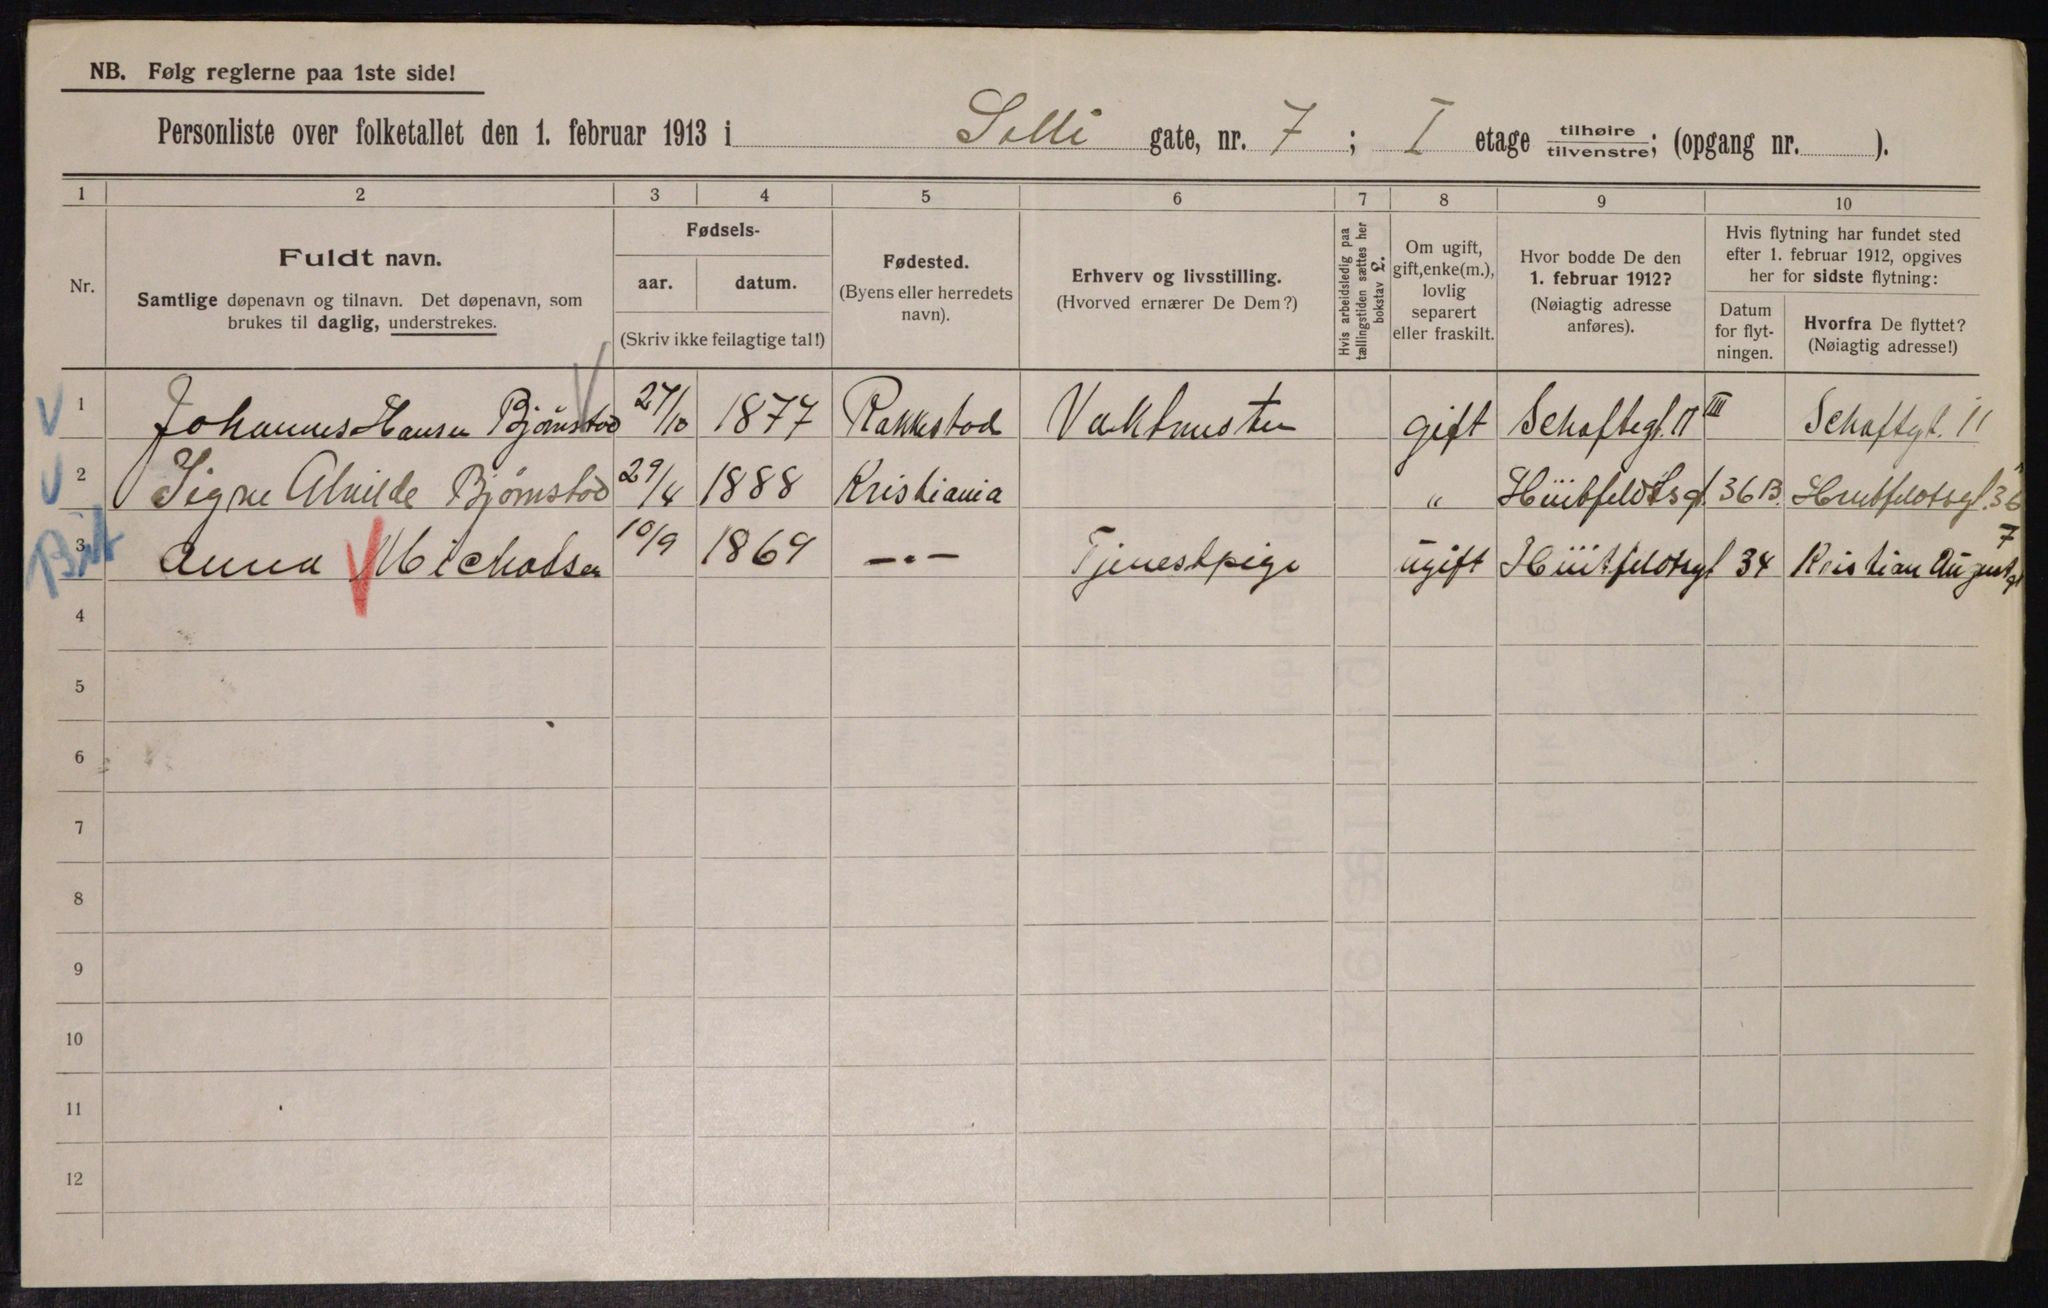 NB. Følg reglerne paa 1ste side!
Personliste over folketallet den 1. februar 1913 i Solli gate, nr. 7 ; I etage tilhøire/tilvenstre; (opgang nr. ).
1 2 3 4 5 6 7 8 9 10
Nr.
Fuldt navn.
Samtlige døpenavn og tilnavn. Det døpenavn, som
brukes til daglig, understrekes.
Fødsels-
aar. datum.
(Skriv ikke feilagtige tal!)
Fødested.
(Byens eller herredets
navn).
Erhverv og livsstilling.
(Hvorved ernærer De Dem?)
Hvis arbeidsledig paa
tællingstiden sættes her
bokstav L.
Om ugift,
gift, enke(m.),
lovlig
separert
eller fraskilt.
Hvor bodde De den
1. februar 1912?
(Nøiagtig adresse
anføres).
Hvis flytning har fundet sted
efter 1. februar 1912, opgives
her for sidste flytning:
Datum
for flyt-
ningen.
Hvorfra De flyttet?
(Nøiagtig adresse!)
1 Johannes Hansen Bjørnstad 27/10 1877 Rakkestad Vaktmester gift Schaftegt. 11 III Schaftgt. 11
2 Signe Alvilde Bjørnstad 29/4 1888 Kristiania " Hüitfeldtsgt 36 B. Huitfeldtsgt. 36
3 Anna Michalsen 10/9 1869 —"— Tjenestpige ugift Hüitfeldtsgt 34 Kristian Augustgt 7
4
5
6
7
8
9
10
11
12